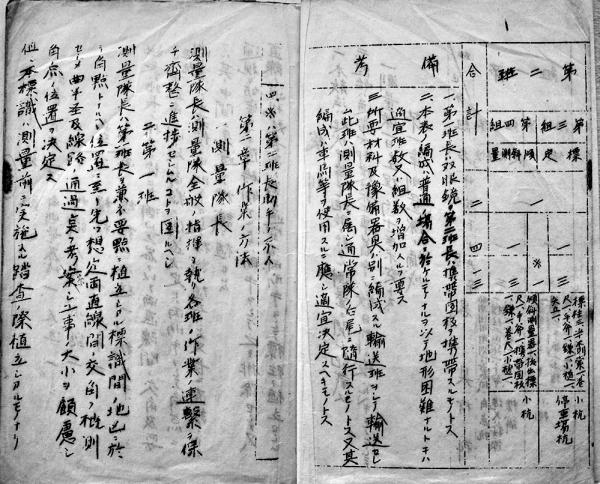 第二班
第三組
標定
第四組
傾斜測量
一
一
三
※
一
三
合計
二
四
一三
小杭
停車場杭
小杭
備考
一、第一班長ハ双眼鏡第二班長ハ携帯図板ヲ携帯スルモノトス
二、本表ノ編成ハ普通ノ場合ニ於ケルモノナルヲ以テ地形困難ナルトキハ
適宜班数又ハ組数ヲ増加スルヲ要ス
三、所要材料及予備器具ハ別ニ編成スル輸送班ヲシテ輸送セシ
此班ハ測量隊長ニ属シ通常隊ノ後尾ニ随行スルモノトス又其
編成ハ車馬等ヲ使用スルニ応シ適宜決定スヘキモノトス
四、※ハ第二班長助手ノ一人
第二章 作業ノ方法
一、測量隊長
測量隊長ハ測量隊全般ノ指揮ヲ執リ各班ノ作業ノ連繋ヲ保
チ齊整ニ進捗セシムルコトヲ図ルヘシ
二、第一班
測量隊長ハ第一班長ヲ兼ネ要点ニ植立シタル標識間ノ地區ニ於
テ角点トナルヘキ位置ニ至リ先ツ想定両直線間ノ交角ヲ概測
セシメ曲半径及線路ノ通過点ヲ考案シ工事ノ大小ヲ顧慮シ
角点ノ位置ヲ決定ス
但シ本標識ハ測量前ニ実施スル踏査ノ際植立シタルモノナリ